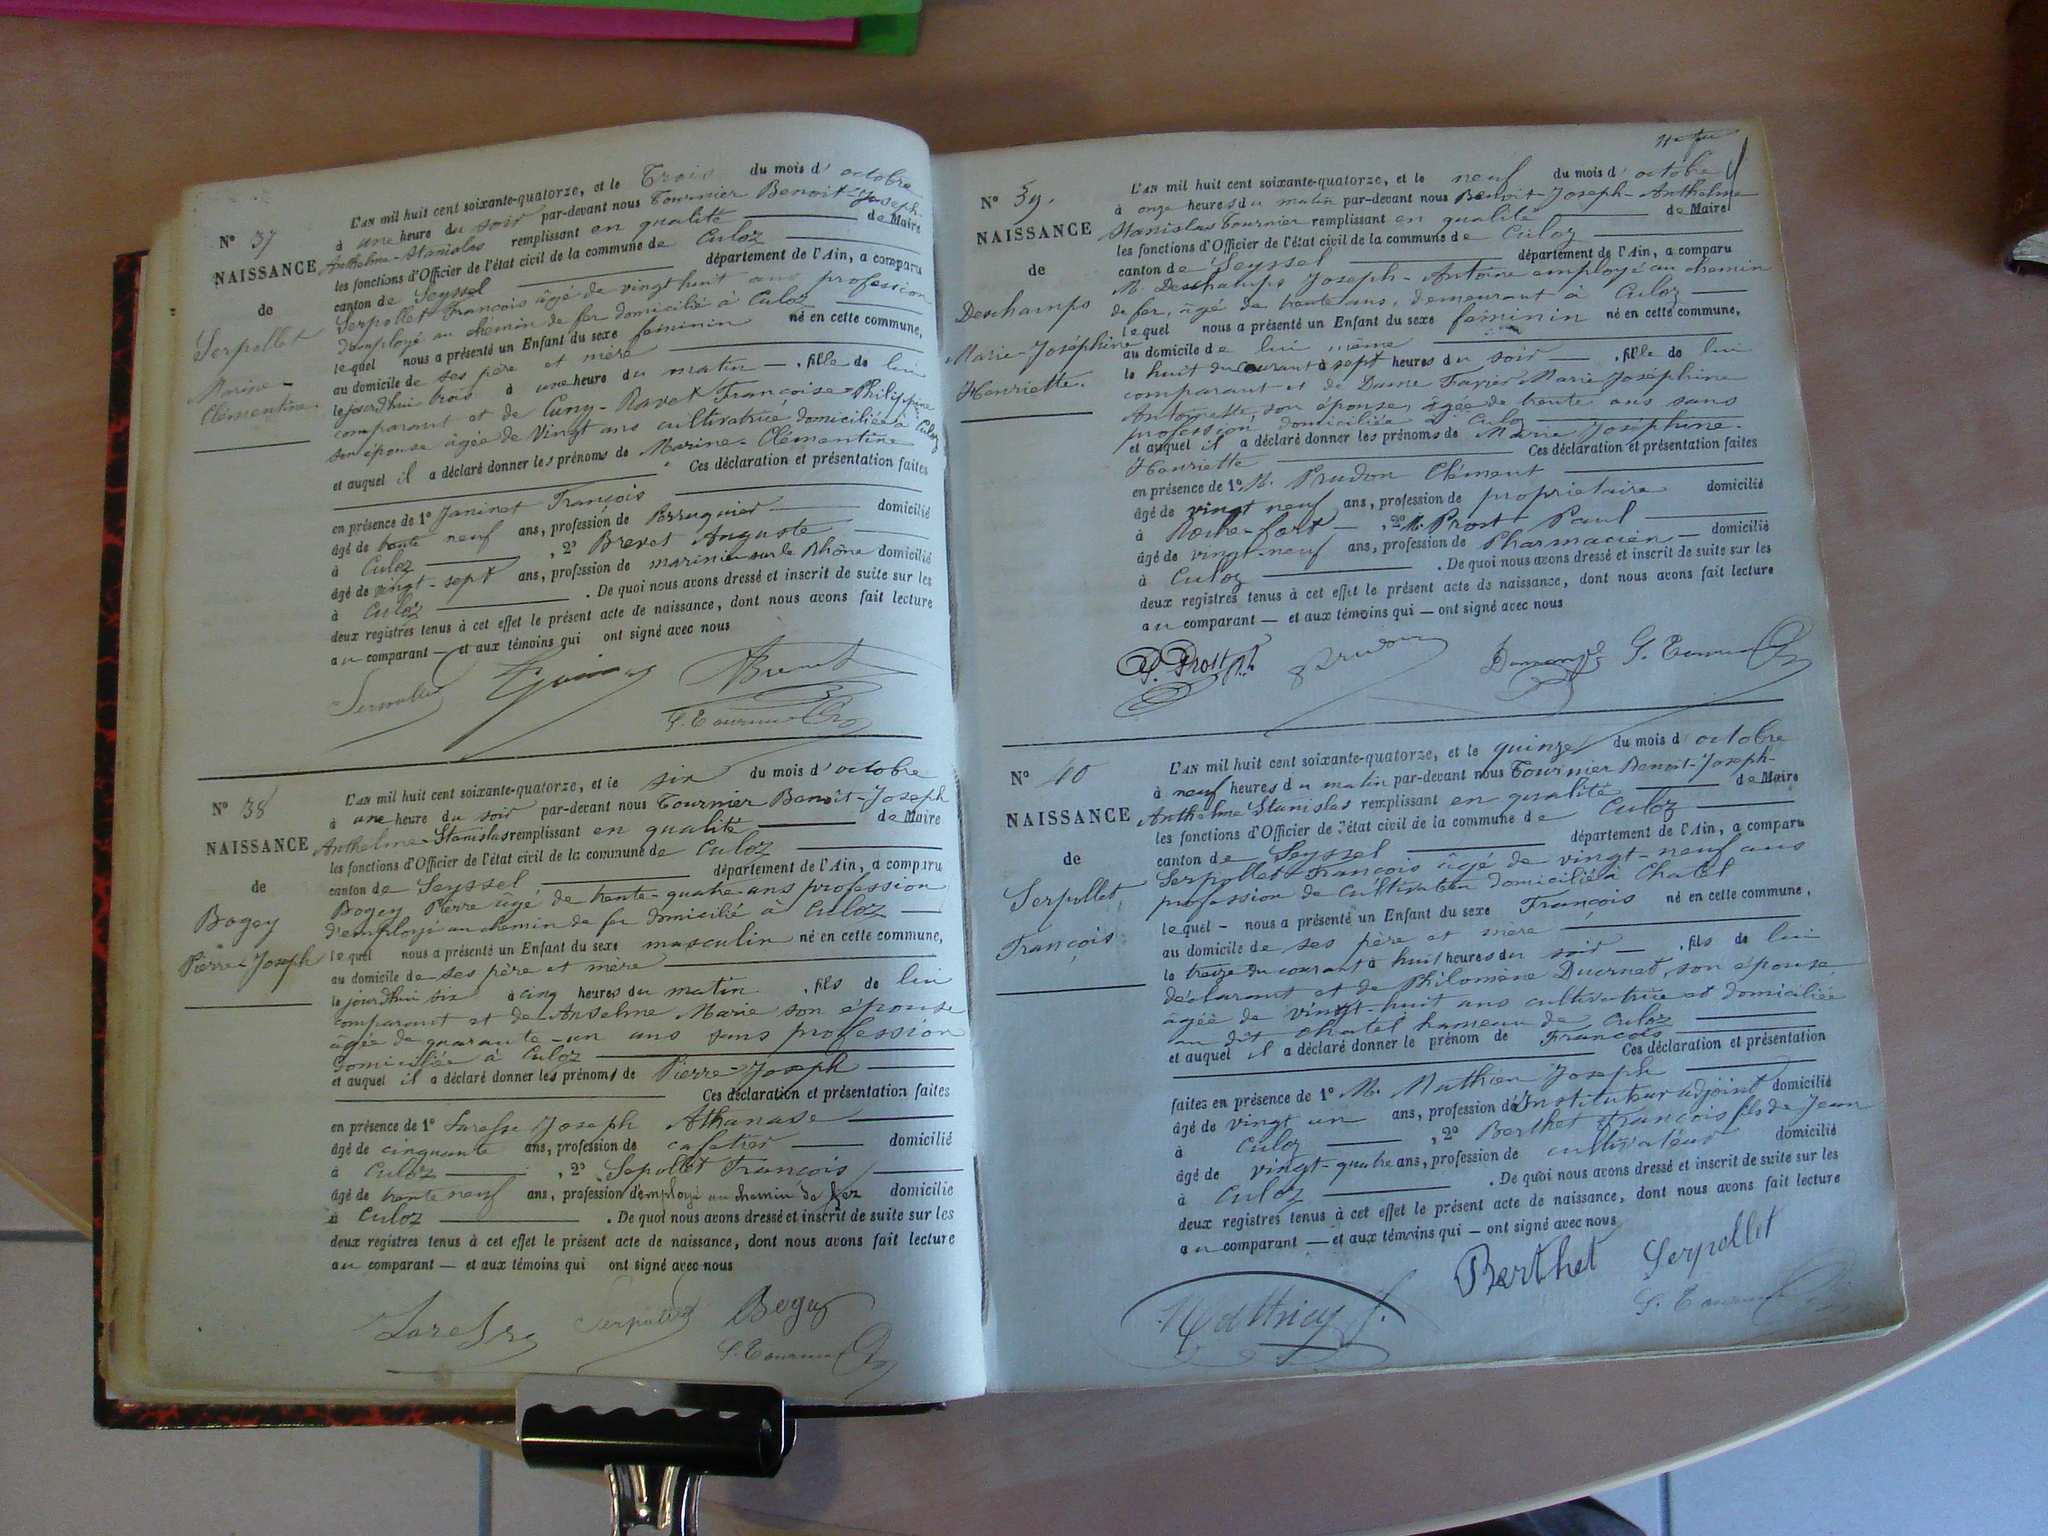 N° 37
NAISSANCE
de
Serpollet
Marine-
Clémentine.
L'AN mil huit cent soixante-quatorze, et le Trois du mois d'octobre
à une heure du soir par-devant nous Tournier Benoit-Joseph-
Anthelme-Stanislas remplissant en qualité de Maire
les fonctions d'Officier de l'état civil de la commune de Culoz
canton de Seyssel département de l'Ain, a comparu
Serpollet François âgé de vingt huit ans profession
d'employé au chemin de fer domicilié à Culoz
lequel nous a présenté un Enfant du sexe feminin né en cette commune,
au domicile de ses père et mère
le jourd'hui trois à une heure du matin , fille de lui
comparant et de Cuny-Ravet Françoise-Philippine
son épouse âgée de Vingt ans cultivatrice domiciliée à Culoz
et auquel il a déclaré donner les prénoms de Marine-Clémentine
Ces déclaration et présentation faites
en présence de 1° Janinet François
âgé de trente neuf ans, profession de Perruquier domicilié
à Culoz , 2° Brevet Auguste
âgé de vingt-sept ans, profession de marinier sur le Rhône domicilié
à Culoz . De quoi nous avons dressé et inscrit de suite sur les
deux registres tenus à cet effet le présent acte de naissance, dont nous avons fait lecture
au comparant — et aux témoins qui ont signé avec nous
Serpollet
S. Tournier
N° 38
NAISSANCE
de
Bogey
Pierre-Joseph
L'AN mil huit cent soixante-quatorze, et le six du mois d'octobre
à une heure du soir par-devant nous Tournier Benoît-Joseph
Anthelme-Stanislas remplissant en qualité de Maire
les fonctions d'Officier de l'état civil de la commune de Culoz
canton de Seyssel département de l'Ain, a comparu
Bogey Pierre âgé de trente-quatre ans profession
d'employé au chemin de fer domicilié à Culoz
lequel nous a présenté un Enfant du sexe masculin né en cette commune,
au domicile de ses père et mère
le jourd'hui six à cinq heures du matin , fils de lui
comparant et de Anselme Marie son épouse
âgée de quarante-un ans sans profession
domiciliée à Culoz
et auquel il a déclaré donner les prénoms de Pierre-Joseph
Ces déclaration et présentation faites
en présence de 1° Joseph Athanase
âgé de cinquante ans, profession de cafetier domicilié
à Culoz , 2° Sepollet François
âgé de trente neuf ans, profession d'employé au chemin de fer domicilié
à Culoz . De quoi nous avons dressé et inscrit de suite sur les
deux registres tenus à cet effet le présent acte de naissance, dont nous avons fait lecture
au comparant — et aux témoins qui ont signé avec nous
Serpollet Bogey
S. Tournier
N° 39.
NAISSANCE
de
Deschamps
Marie-Joséphine
Henriette.
L'AN mil huit cent soixante-quatorze, et le neuf du mois d'octobre
à onze heures du matin par-devant nous Benoit-Joseph-Anthelme
Stanislas Tournier remplissant en qualité de Maire
les fonctions d'Officier de l'état civil de la commune de Culoz
canton de Seyssel département de l'Ain, a comparu
M. Deschamps Joseph-Antoine employé au chemin
de fer, âgé de trente ans, demeurant à Culoz
lequel nous a présenté un Enfant du sexe feminin né en cette commune,
au domicile de lui même
le huit du courant à sept heures du soir , fille de lui
comparant et de Dame Favier Marie Joséphine
Antoinette, son épouse, âgée de trente ans sans
profession, domiciliée à Culoz
et auquel il a déclaré donner les prénoms de Marie Joséphine-
Henriette Ces déclaration et présentation faites
en présence de 1° M. Prudon Clément
âgé de vingt neuf ans, profession de propriétaire domicilié
à Roche-fort , 2° M. Prost Paul
âgé de vingt-neuf ans, profession de Pharmacien domicilié
à Culoz . De quoi nous avons dressé et inscrit de suite sur les
deux registres tenus à cet effet le présent acte de naissance, dont nous avons fait lecture
au comparant — et aux témoins qui — ont signé avec nous
P. Prost Prudon S. Tournier
N° 40
NAISSANCE
de
Serpollet
François
L'AN mil huit cent soixante-quatorze, et le quinze du mois d'octobre
à neuf heures du matin par-devant nous Tournier Benoit-Joseph-
Anthelme Stanislas remplissant en qualité de Maire
les fonctions d'Officier de l'état civil de la commune de Culoz
canton de Seyssel département de l'Ain, a comparu
Serpollet François âgé de vingt-neuf ans
profession de Cultivateur domicilié à Chatel
lequel — nous a présenté un Enfant du sexe François né en cette commune,
au domicile de ses père et mère
le treize du courant à huit heures du soir , fils de lui
déclarant et de Philomène Ducrnet, son épouse
âgée de vingt-huit ans cultivatrice et domiciliée
au dit Chatel hameau de Culoz
et auquel il a déclaré donner le prénom de François
Ces déclaration et présentation
faites en présence de 1° M. Mathieu Joseph
âgé de vingt un ans, profession d'Instituteur adjoint domicilié
à Culoz , 2° Berthet François fils de Jean
âgé de vingt-quatre ans, profession de cultivateur domicilié
à Culoz . De quoi nous avons dressé et inscrit de suite sur les
deux registres tenus à cet effet le présent acte de naissance, dont nous avons fait lecture
au comparant — et aux témoins qui — ont signé avec nous
Berthet Serpollet
Mathieu J. S. Tournier